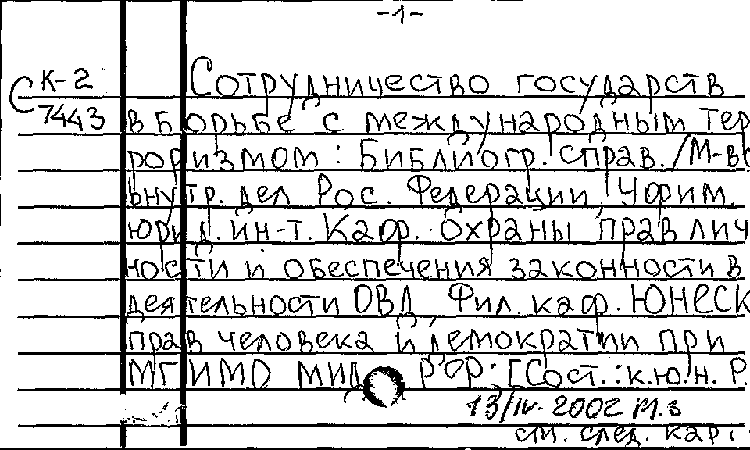 -1-
К-2 Сотрудничество государств
С 7443 в борьбе с международным тер
роризмом: Библиогр. справ./М-во
внутр. дел Рос. Федерации, Уфим.
юрид. ин-т. Каф. охраны прав лич
ности и обеспечения законности в
деятельности ОВД, Фил. каф. ЮНЕСК
прав человека и демократии при
МГИМО МИД РФ; [Сост.: к.ю.н. Р
13/IV-2002 М.З
см. след. карт.